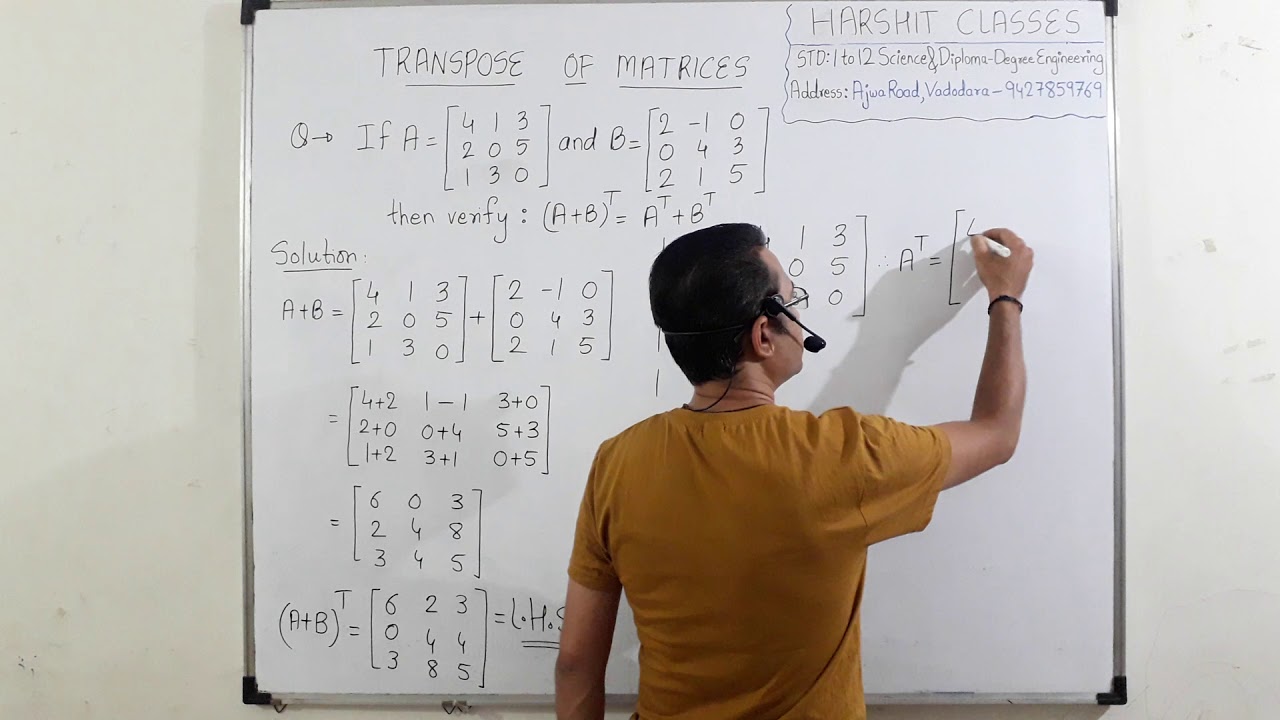 HARSHIT CLASSES
STD: 1 to 12 Science & Diploma-Degree Engineering
Address: Ajwa Road, Vadodara - 9427859769
TRANSPOSE OF MATRICES
Q→ If A = [4 1 3 and B = [2 -1 0
2 0 5 0 4 3
1 3 0] 2 1 5]
then verify : (A+B)ᵀ = Aᵀ + Bᵀ
Solution :
A+B = [4 1 3 + [2 -1 0
2 0 5 0 4 3
1 3 0] 2 1 5]
= [4+2 1-1 3+0
2+0 0+4 5+3
1+2 3+1 0+5]
= [6 0 3
2 4 8
3 4 5]
(A+B)ᵀ = [6 2 3 = L.H.S
0 4 4
3 8 5]
1 3
0 5 ∴ Aᵀ = [
0]